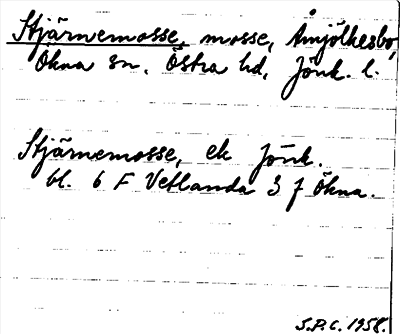 Stjärnemosse, mosse, Åmjölkesbo,
Ökna sn, Östra hd, Jönk. l.
Stjärnemosse, ek Jönk.
bl. 6 F Vetlanda 3 f Ökna.
S.P.C. 1958.